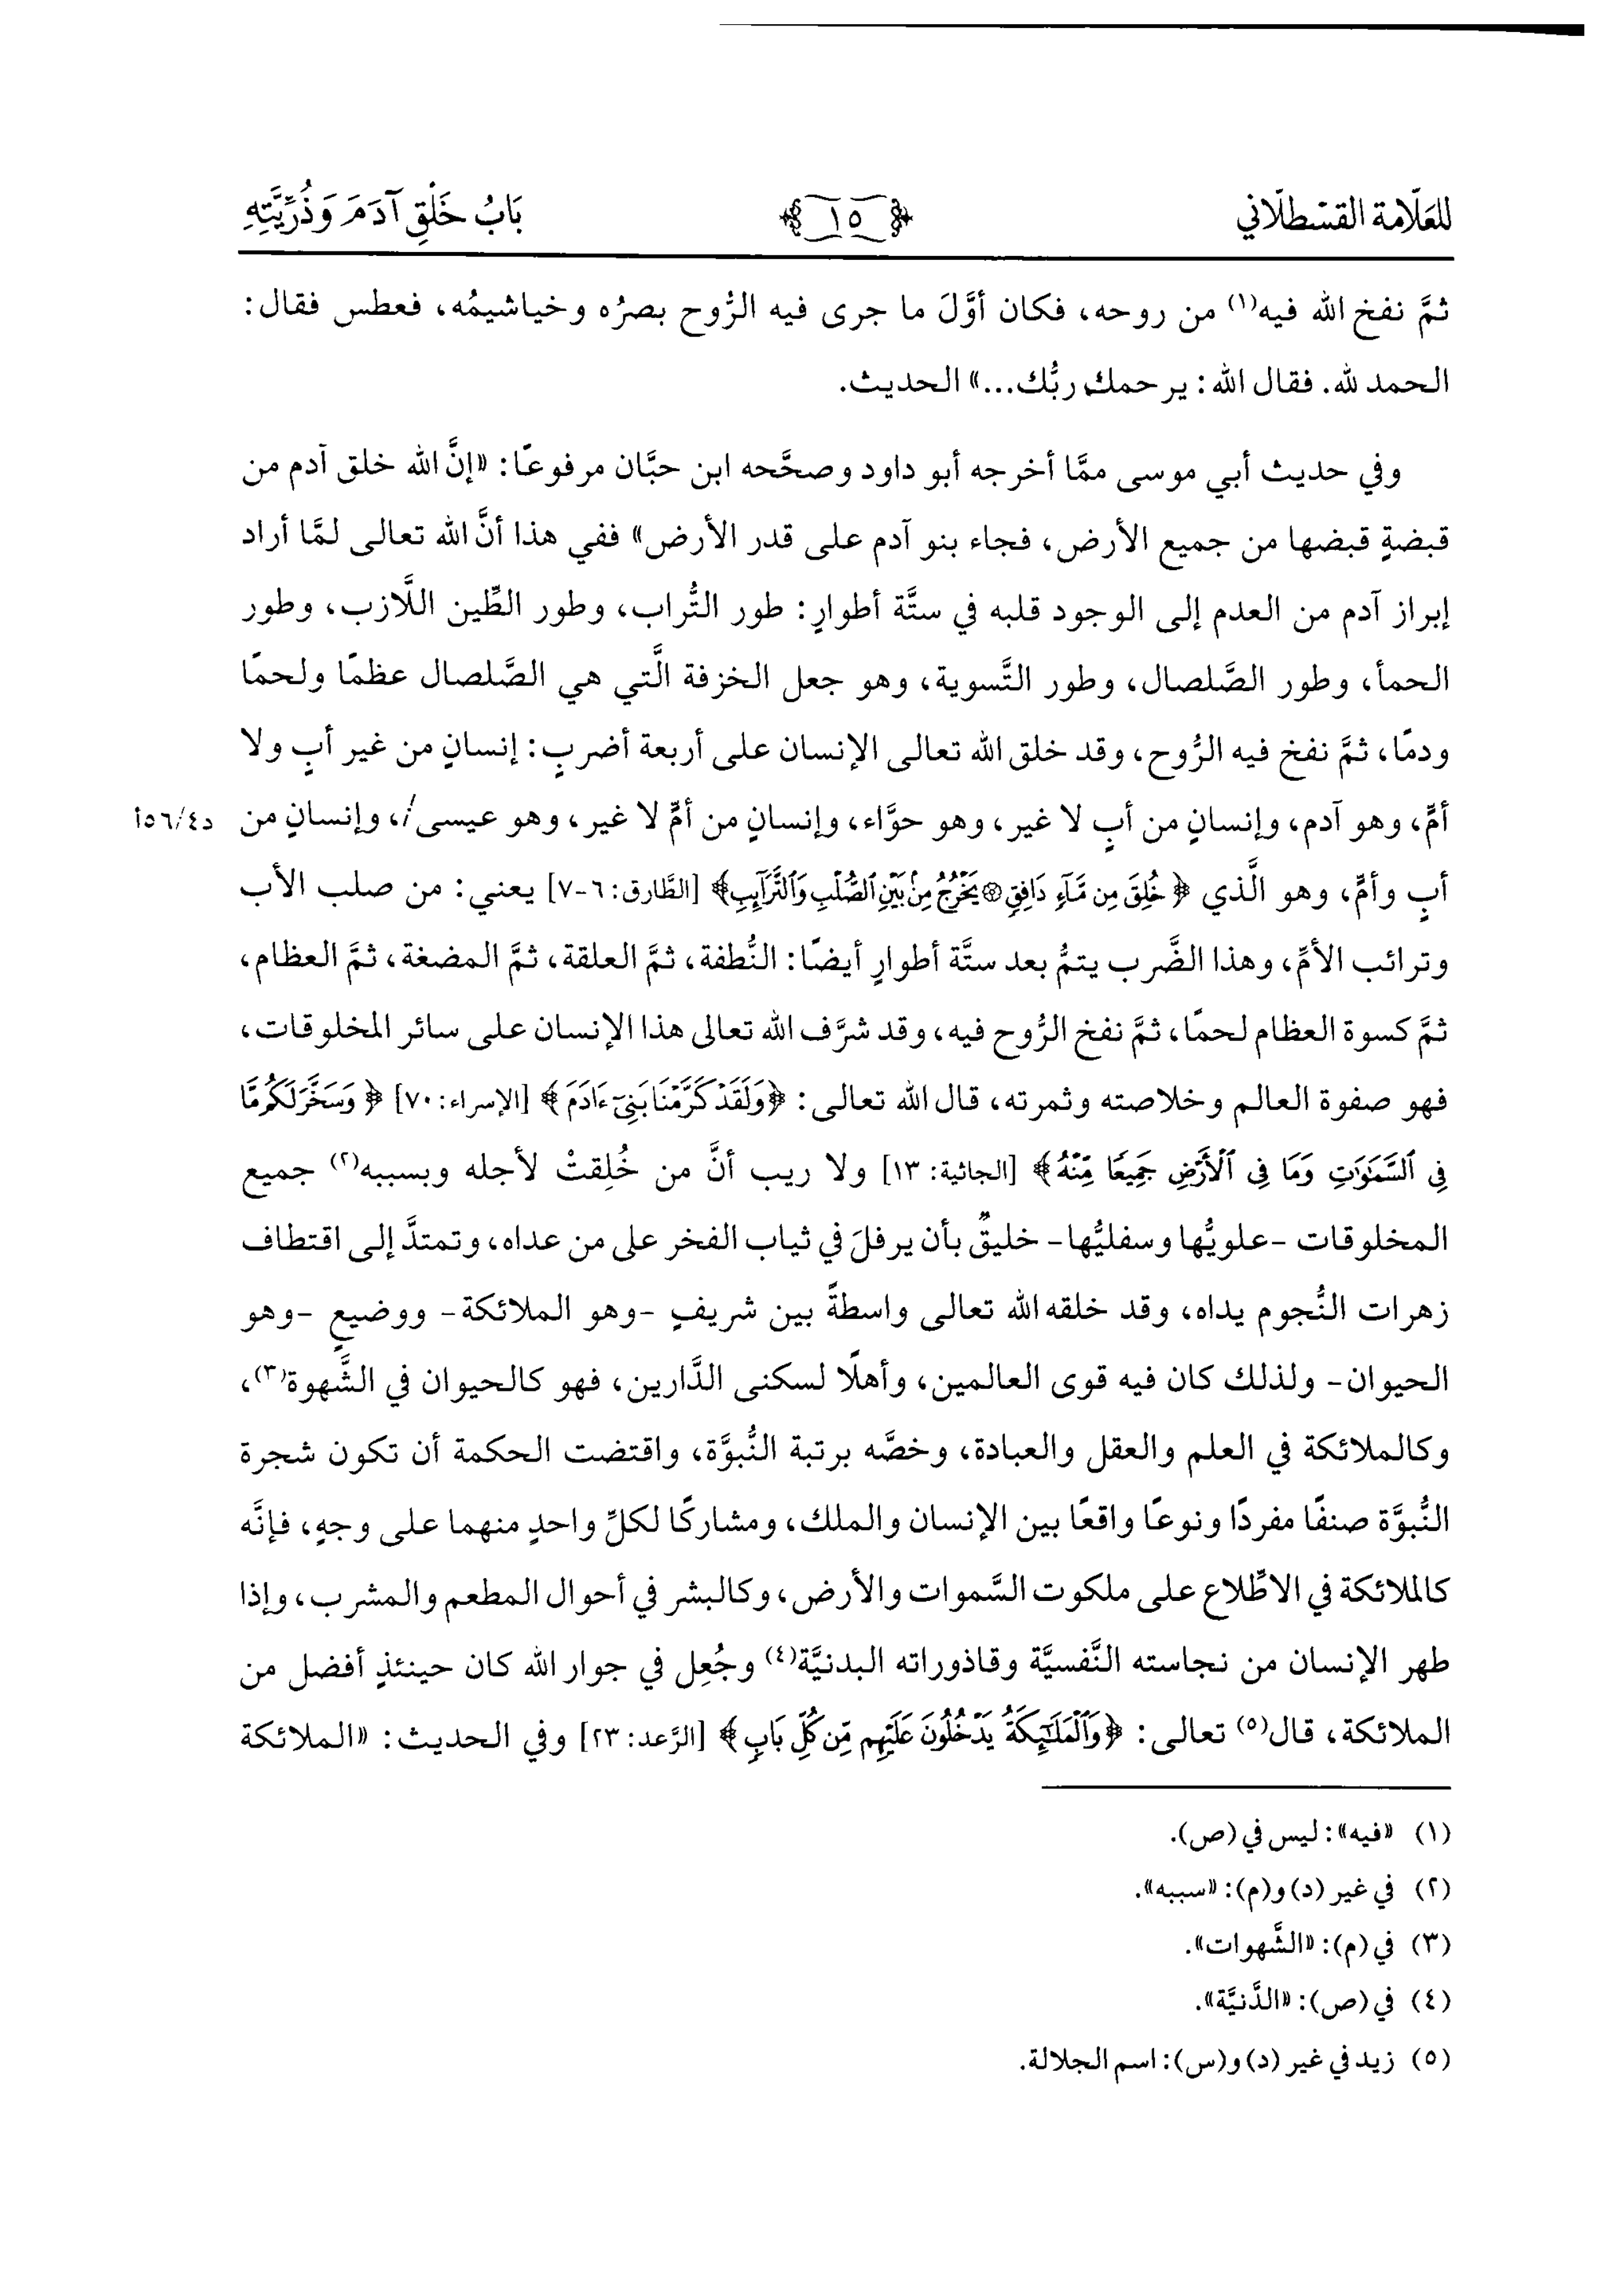 للعلّامة القسطلّاني
١٥
بَابُ خَلْقِ آدَمَ وَذُرِّيَّتِهِ
ثمَّ نفخ الله فيه(١) من روحه، فكان أوَّلَ ما جرى فيه الرُّوح بصرُه وخياشيمُه، فعطس فقال:
الحمد لله. فقال الله: يرحمك ربُّك...» الحديث.
وفي حديث أبي موسى ممَّا أخرجه أبو داود وصحَّحه ابن حبَّان مرفوعًا: «إنَّ الله خلق آدم من
قبضةٍ قبضها من جميع الأرض، فجاء بنو آدم على قدر الأرض» ففي هذا أنَّ الله تعالى لمَّا أراد
إبراز آدم من العدم إلى الوجود قلبه في ستَّة أطوارٍ: طور التُّراب، وطور الطِّين اللَّازب، وطور
الحمأ، وطور الصَّلصال، وطور التَّسوية، وهو جعل الخزفة الَّتي هي الصَّلصال عظمًا ولحمًا
ودمًا، ثمَّ نفخ فيه الرُّوح، وقد خلق الله تعالى الإنسان على أربعة أضربٍ: إنسانٍ من غير أبٍ ولا
أمٍّ، وهو آدم، وإنسانٍ من أبٍ لا غير، وهو حوَّاء، وإنسانٍ من أمٍّ لا غير، وهو عيسى/، وإنسانٍ من
د٤/٥٦أ
أبٍ وأمٍّ، وهو الَّذي ﴿خُلِقَ مِن مَّآءٍ دَافِقٍ ۞ يَخْرُجُ مِنۢ بَيْنِ ٱلصُّلْبِ وَٱلتَّرَآئِبِ﴾ [الطَّارق: ٦-٧] يعني: من صلب الأب
وترائب الأمِّ، وهذا الضَّرب يتمُّ بعد ستَّة أطوارٍ أيضًا: النُّطفة، ثمَّ العلقة، ثمَّ المضغة، ثمَّ العظام،
ثمَّ كسوة العظام لحمًا، ثمَّ نفخ الرُّوح فيه، وقد شرَّف الله تعالى هذا الإنسان على سائر المخلوقات،
فهو صفوة العالم وخلاصته وثمرته، قال الله تعالى: ﴿وَلَقَدْ كَرَّمْنَا بَنِىٓ ءَادَمَ﴾ [الإسراء: ٧٠] ﴿وَسَخَّرَ لَكُم مَّا
فِى ٱلسَّمَٰوَٰتِ وَمَا فِى ٱلْأَرْضِ جَمِيعًا مِّنْهُ﴾ [الجاثية: ١٣] ولا ريب أنَّ من خُلِقتْ لأجله وبسببه(٢) جميع
المخلوقات -علويُّها وسفليُّها- خليقٌ بأن يرفلَ في ثياب الفخر على من عداه، وتمتدَّ إلى اقتطاف
زهرات النُّجوم يداه، وقد خلقه الله تعالى واسطةً بين شريفٍ -وهو الملائكة- ووضيعٍ -وهو
الحيوان- ولذلك كان فيه قوى العالمين، وأهلًا لسكنى الدَّارين، فهو كالحيوان في الشَّهوة(٣)،
وكالملائكة في العلم والعقل والعبادة، وخصَّه برتبة النُّبوَّة، واقتضت الحكمة أن تكون شجرة
النُّبوَّة صنفًا مفردًا ونوعًا واقعًا بين الإنسان والملك، ومشاركًا لكلِّ واحدٍ منهما على وجهٍ، فإنَّه
كالملائكة في الاطِّلاع على ملكوت السَّموات والأرض، وكالبشر في أحوال المطعم والمشرب، وإذا
طهر الإنسان من نجاسته النَّفسيَّة وقاذوراته البدنيَّة(٤) وجُعِل في جوار الله كان حينئذٍ أفضل من
الملائكة، قال(٥) تعالى: ﴿وَٱلْمَلَٰٓئِكَةُ يَدْخُلُونَ عَلَيْهِم مِّن كُلِّ بَابٍ﴾ [الرَّعد: ٢٣] وفي الحديث: «الملائكة
(١) «فيه»: ليس في (ص).
(٢) في غير (د) و(م): «سببه».
(٣) في (م): «الشَّهوات».
(٤) في (ص): «الدَّنيَّة».
(٥) زيد في غير (د) و(س): اسم الجلالة.